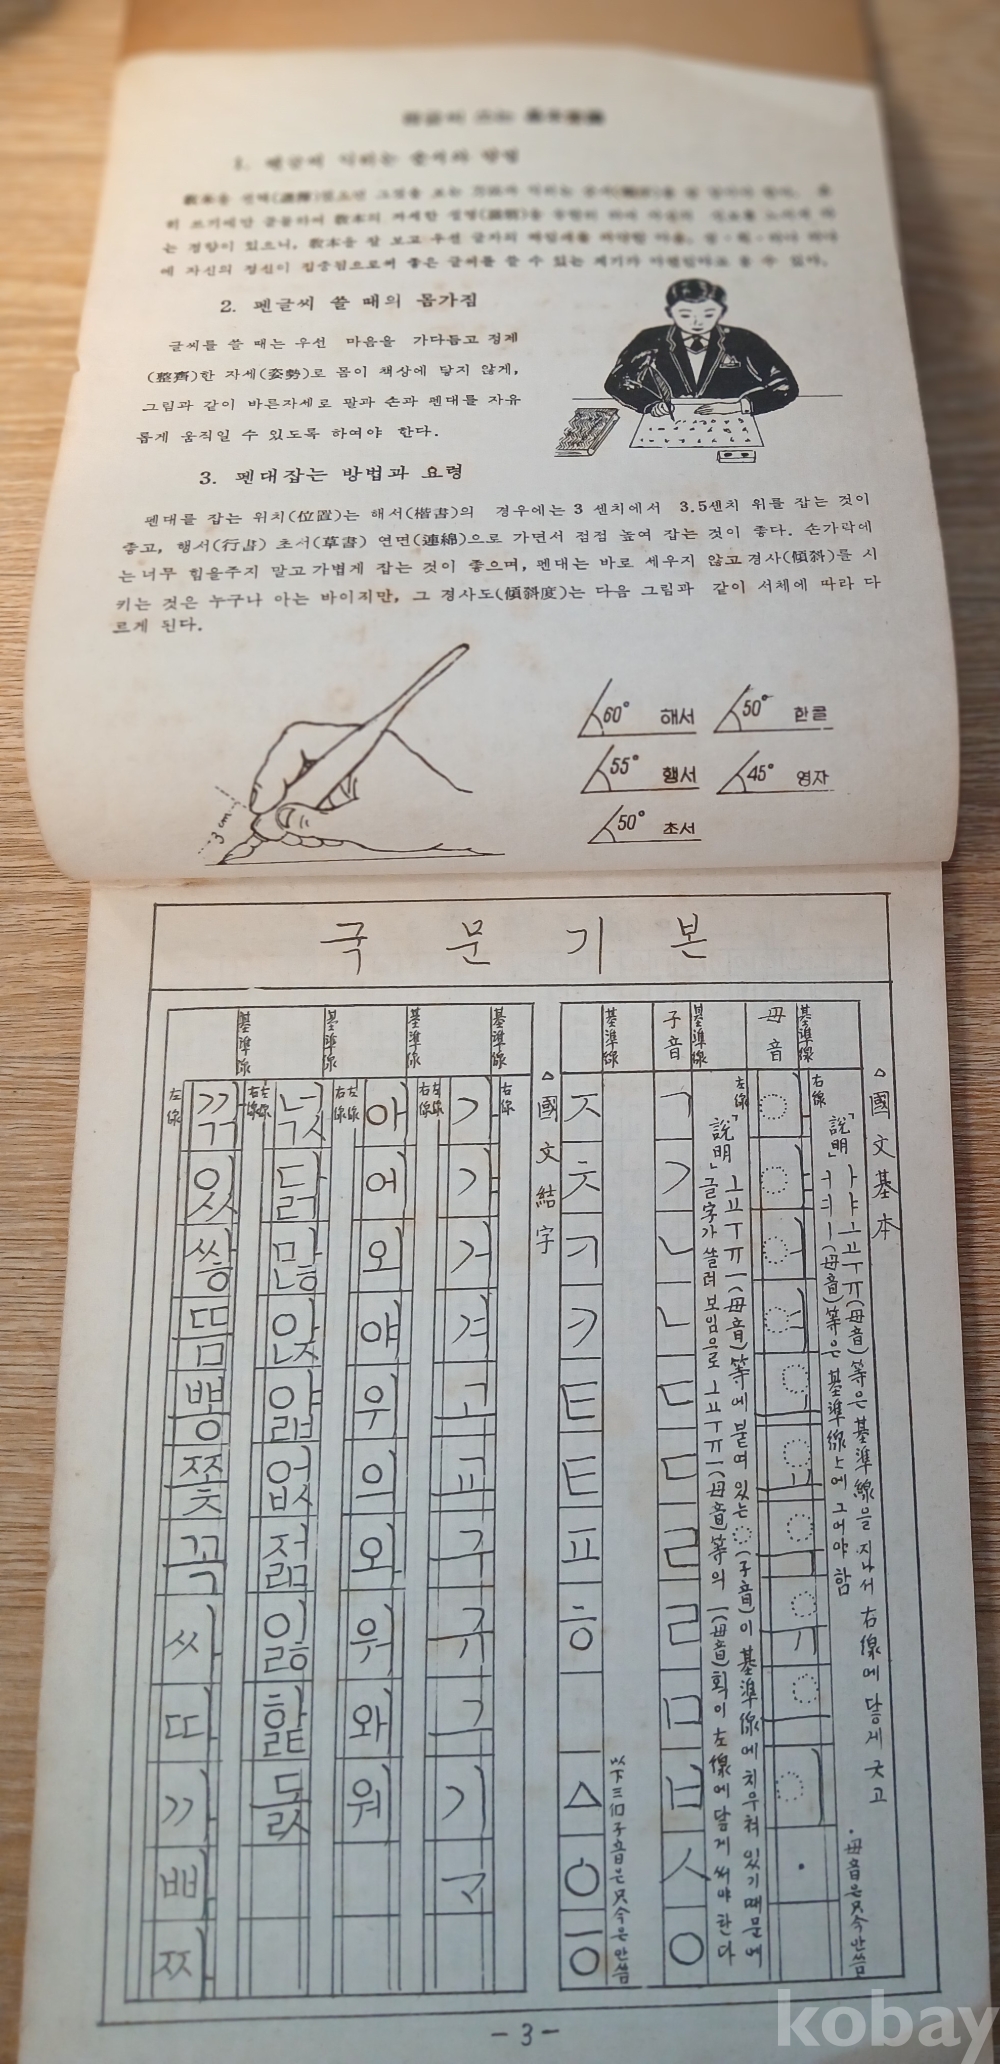 1. 펜글씨 익히는 순서와 방법
는 경향이 있으니, 敎本을 잘 보고 우선 글자의
에 자신의 정신이 집중됨으로써 좋은 글씨를 쓸 수 있는 계기가
2. 펜글씨 쓸 때의 몸가짐
글씨를 쓸 때는 우선 마음을 가다듬고 정제
(整齊)한 자세(姿勢)로 몸이 책상에 닿지 않게,
그림과 같이 바른자세로 팔과 손과 펜대를 자유
롭게 움직일 수 있도록 하여야 한다.
3. 펜대잡는 방법과 요령
펜대를 잡는 위치(位置)는 해서(楷書)의 경우에는 3 센치에서 3.5센치 위를 잡는 것이
좋고, 행서(行書) 초서(草書) 연면(連綿)으로 가면서 점점 높여 잡는 것이 좋다. 손가락에
는 너무 힘을주지 말고 가볍게 잡는 것이 좋으며, 펜대는 바로 세우지 않고 경사(傾斜)를 시
키는 것은 누구나 아는 바이지만, 그 경사도(傾斜度)는 다음 그림과 같이 서체에 따라 다
르게 된다.
3 cm
60° 해서
50° 한글
55° 행서
45° 영자
50° 초서
국문기본
△國文基本
「說明」ㅏㅑㅗㅛㅜㅠ(母音)等은 基準線을 지나서 右線에 닿게 긋고
ㅓㅕㅣ(母音)等은 基準線上에 그어야 함
·母音은 只今 안씀
母音
基準線
右線
「說明」ㅗㅛㅜㅠㅡ(母音)等에 붙여 있는 ◌(子音)이 基準線에 치우쳐 있기 때문에
글字가 쏠려 보임으로 ㅗㅛㅜㅠㅡ(母音)等의 ㅡ(母音)획이 左線에 닿게 써야 한다
子音
基準線
左線
ㄱ ㄱ ㄴ ㄴ ㄷ ㄷ ㄹ ㄹ ㅁ ㅂ ㅅ ㅇ
基準線
ㅈ ㅊ ㅋ ㅋ ㅌ ㅌ ㅍ ㅎ ㅿ ㆁ ㆆ
以下三個子音은 只今은 안씀
△國文結字
基準線
右線
기 가 거 겨 고 교 구 규 그 기
基準線
아 어 오 야 우 의 외 위 와 워
基準線
넋 닭 많 앉 얇 없 젊 잃 핥 돐
基準線
左線
꾺 있 쌓 뜸 뽕 쫓 꼭 ㅆ ㄸ ㄲ ㅃ ㅉ
-3-
kobay